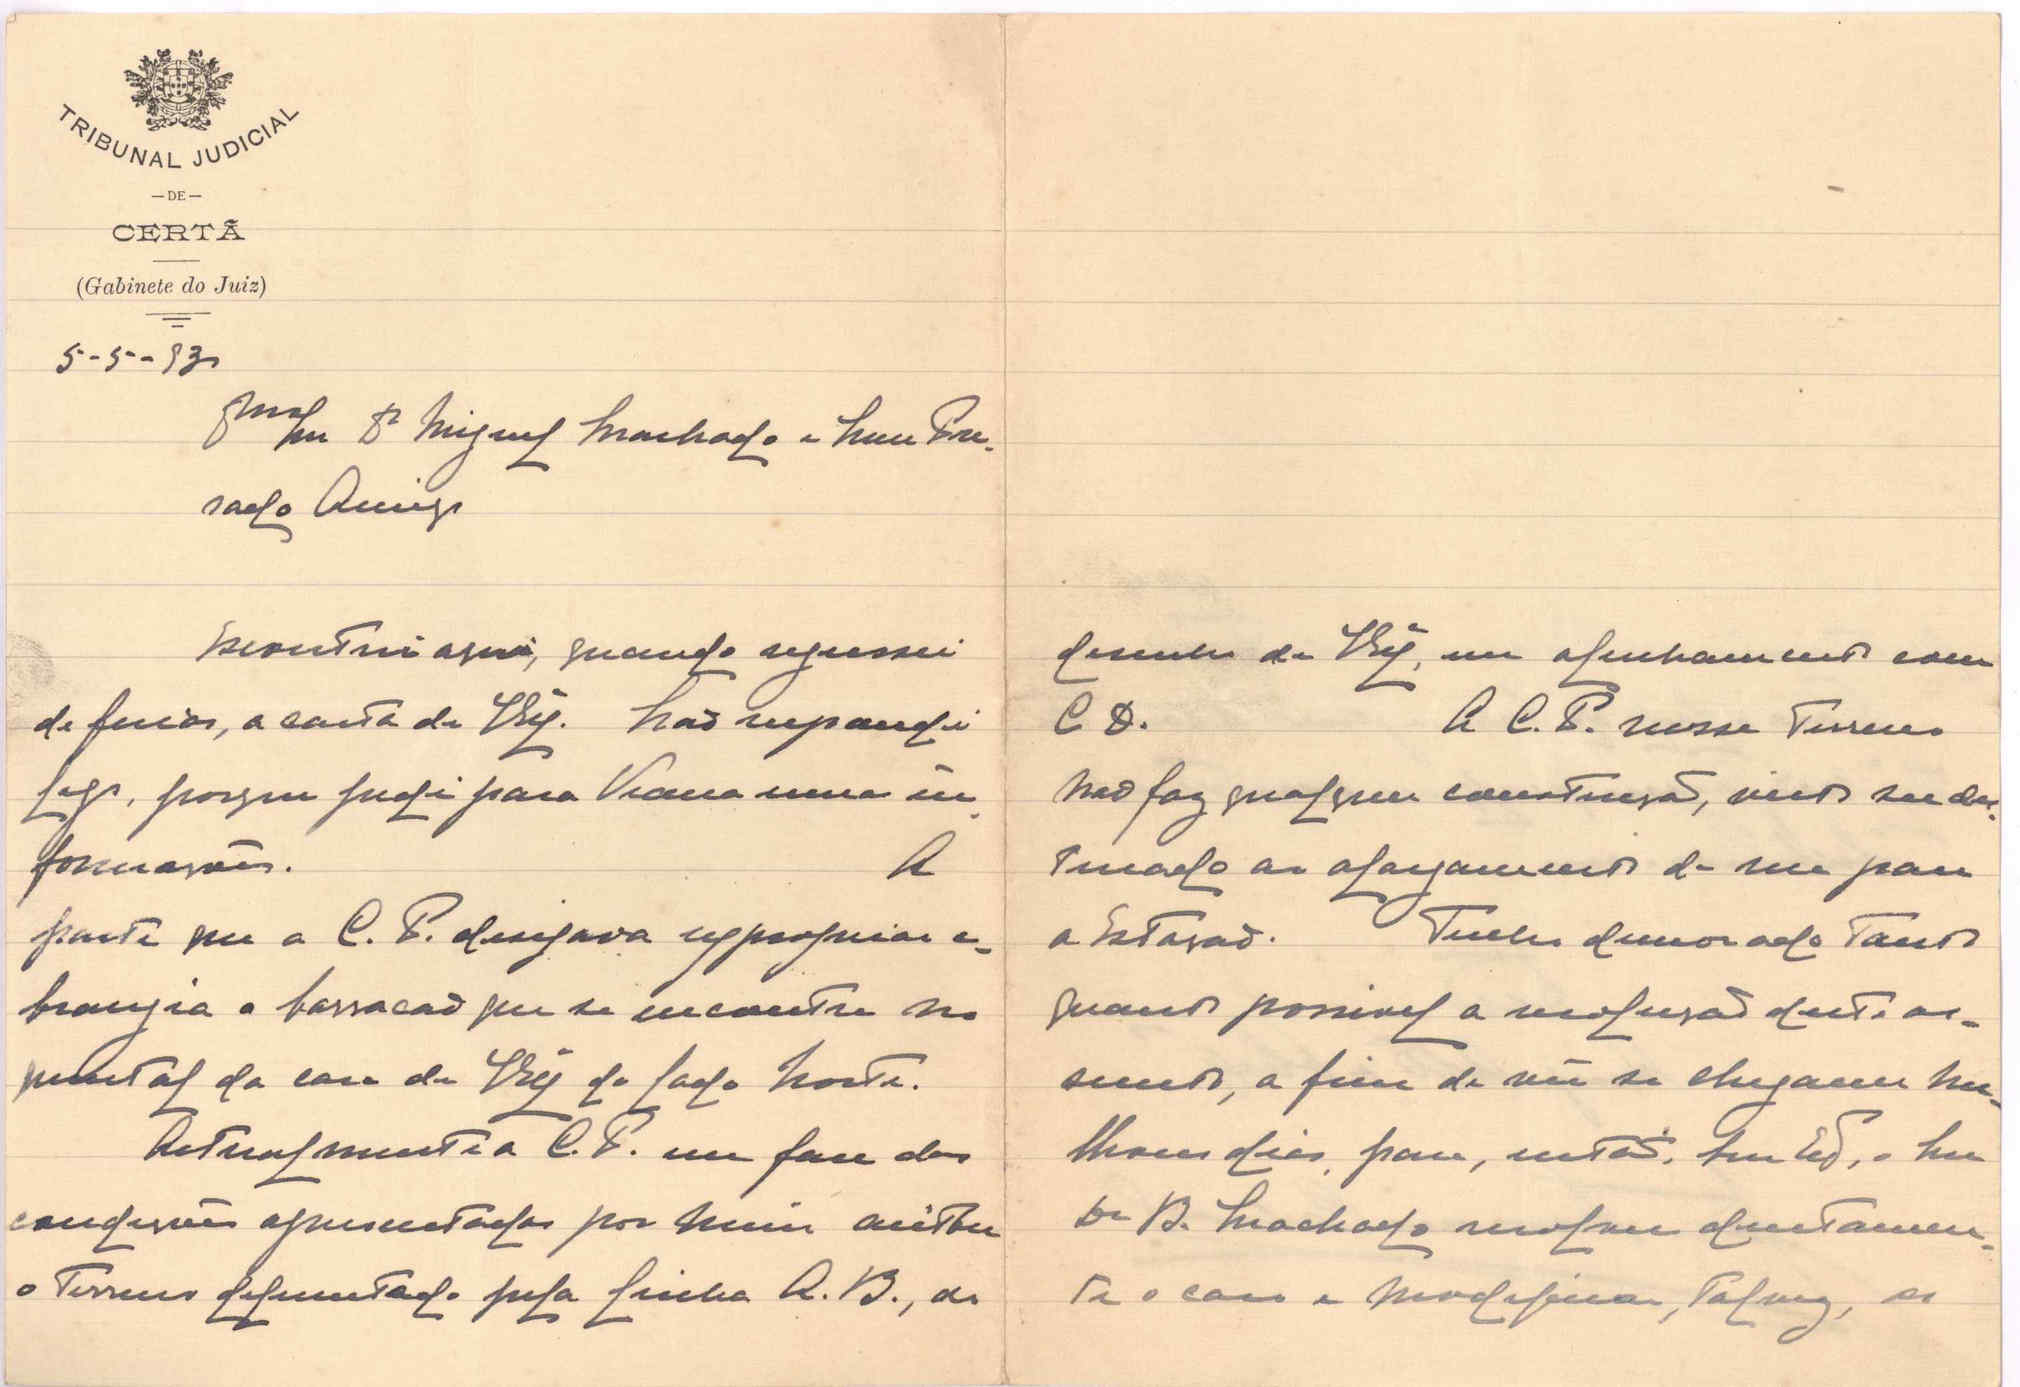 TRIBUNAL JUDICIAL
—DE—
CERTÃ
(Gabinete do Juiz)
5-5-93
Exmo Snr Dr Miguel Machado e Meu Pre-
sado Amigo
Encontrei aqui, quando regressei
de ferias, a carta de V. Exª. Não respondi
logo, porque pedi para Viana umas in-
formações. A
parte que a C. P. desejava expropriar a-
brangia o barracão que se encontra no
quintal da casa de V. Exª do lado Norte.
Actualmente a C. P. em face das
condições apresentadas por mim aceitou
o terreno delimitado pela linha A. B., do
desenho de V. Exª, em alinhamento com
C D. A C. P. nesse terreno
não faz qualquer construção, visto ser des-
tinado ao alargamento da rua para
a Estação. Tenho demorado tanto
quanto possivel a resolução deste as-
sunto, a fim de ver se chegavam me-
lhores dias, para, então, o Snr
Dr B. Machado resolver directamen-
te o caso e modificar, talvez, as